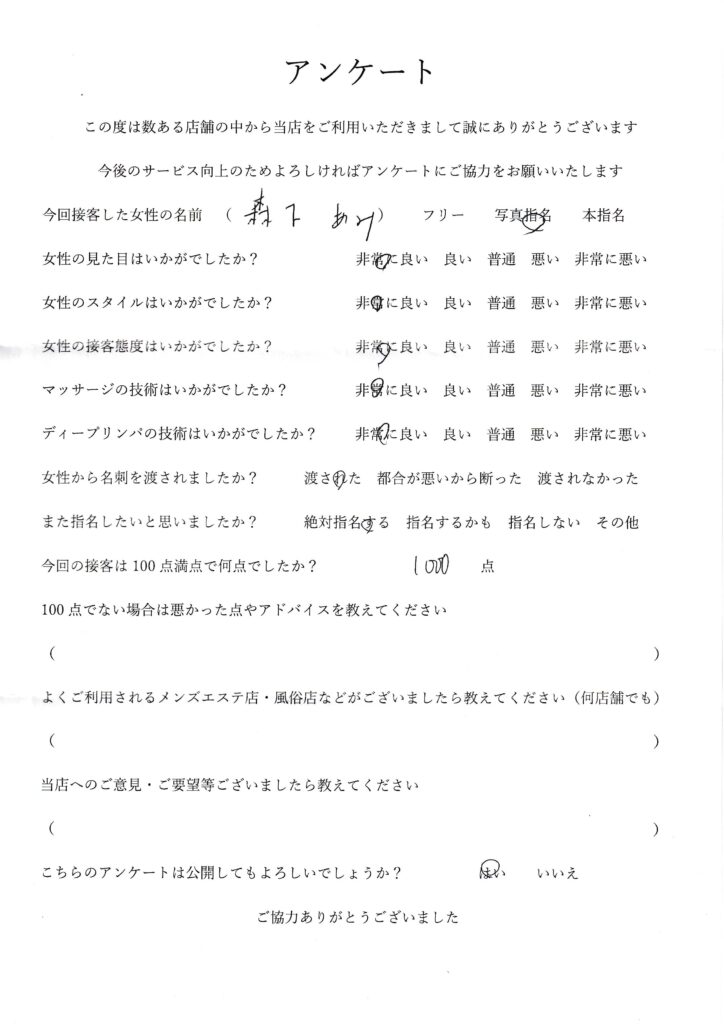 アンケート
この度は数ある店舗の中から当店をご利用いただきまして誠にありがとうございます
今後のサービス向上のためよろしければアンケートにご協力をお願いいたします
今回接客した女性の名前 （ 森下 あみ ） フリー 写真指名 本指名
女性の見た目はいかがでしたか？ 非常に良い 良い 普通 悪い 非常に悪い
女性のスタイルはいかがでしたか？ 非常に良い 良い 普通 悪い 非常に悪い
女性の接客態度はいかがでしたか？ 非常に良い 良い 普通 悪い 非常に悪い
マッサージの技術はいかがでしたか？ 非常に良い 良い 普通 悪い 非常に悪い
ディープリンパの技術はいかがでしたか？ 非常に良い 良い 普通 悪い 非常に悪い
女性から名刺を渡されましたか？ 渡された 都合が悪いから断った 渡されなかった
また指名したいと思いましたか？ 絶対指名する 指名するかも 指名しない その他
今回の接客は100点満点で何点でしたか？ 1000 点
100点でない場合は悪かった点やアドバイスを教えてください
（ ）
よくご利用されるメンズエステ店・風俗店などがございましたら教えてください（何店舗でも）
（ ）
当店へのご意見・ご要望等ございましたら教えてください
（ ）
こちらのアンケートは公開してもよろしいでしょうか？ はい いいえ
ご協力ありがとうございました